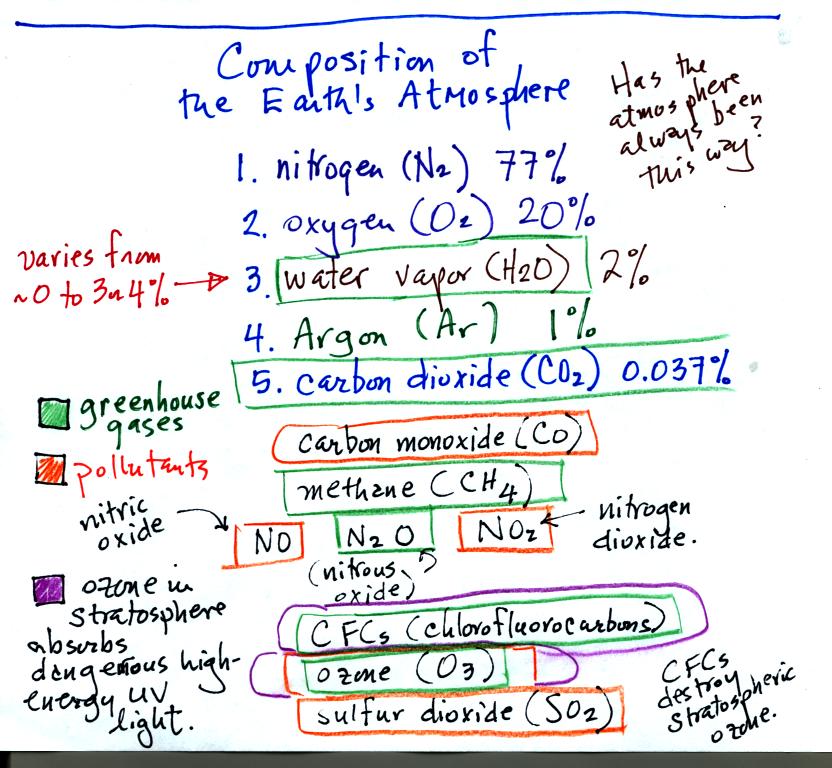 Composition of
the Earth's Atmosphere
Has the
atmosphere
always been
this way?
1. nitrogen (N2) 77%
2. oxygen (O2) 20%
varies from
~0 to 3 or 4%
3. water vapor (H2O) 2%
4. Argon (Ar) 1%
5. carbon dioxide (CO2) 0.037%
greenhouse
gases
pollutants
carbon monoxide (CO)
methane (CH4)
nitric
oxide
NO
N2O
NO2
nitrogen
dioxide.
(nitrous
oxide)
ozone in
stratosphere
absorbs
dangerous high-
energy UV
light.
CFCs (chlorofluorocarbons)
ozone (O3)
sulfur dioxide (SO2)
CFCs
destroy
stratospheric
ozone.